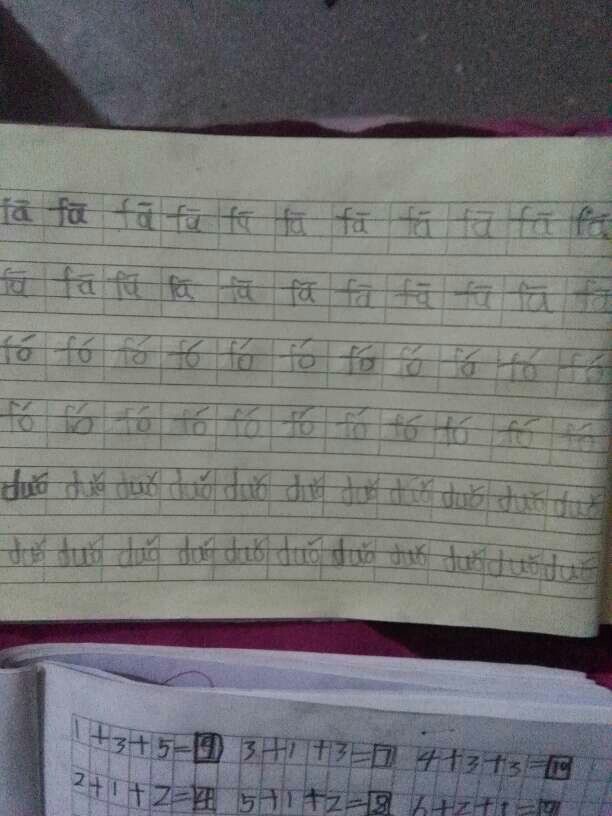 fā fā fā fā fā fā fā fā fā fā fā
fā fā fā fā fā fā fā fā fā fā fā
fó fó fó fó fó fó fó fó fó fó fó
fó fó fó fó fó fó fó fó fó fó fó
duǒ duǒ duǒ duǒ duǒ duǒ duǒ duǒ duǒ duǒ duǒ
duǒ duǒ duǒ duǒ duǒ duǒ duǒ duǒ duǒ duǒ duǒ
1+3+5=9 3+1+3=7 4+3+3=10
2+1+2=4 5+1+2=8